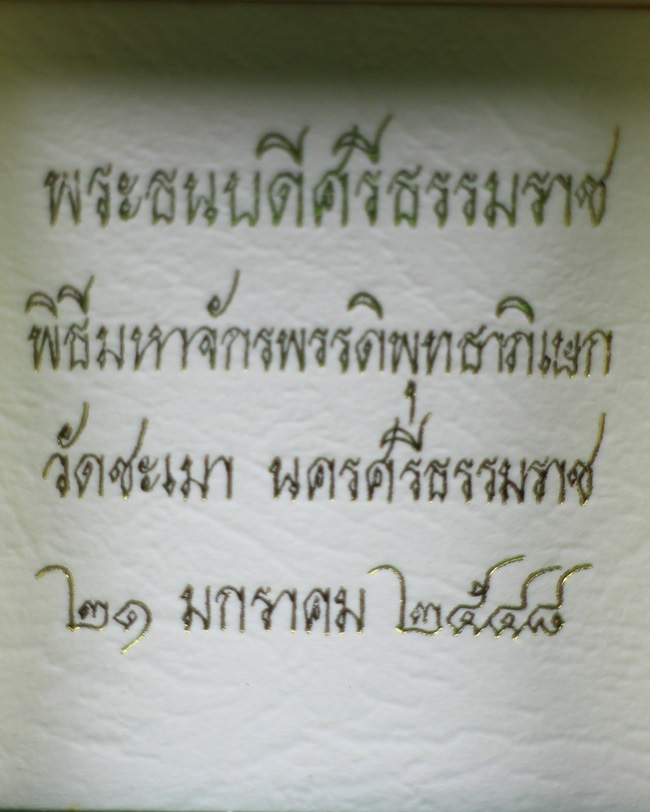 พระธนบดีศรีธรรมราช
พิธีมหาจักรพรรดิพุทธาภิเษก
วัดชะเมา นครศรีธรรมราช
๒๑ มกราคม ๒๕๔๘